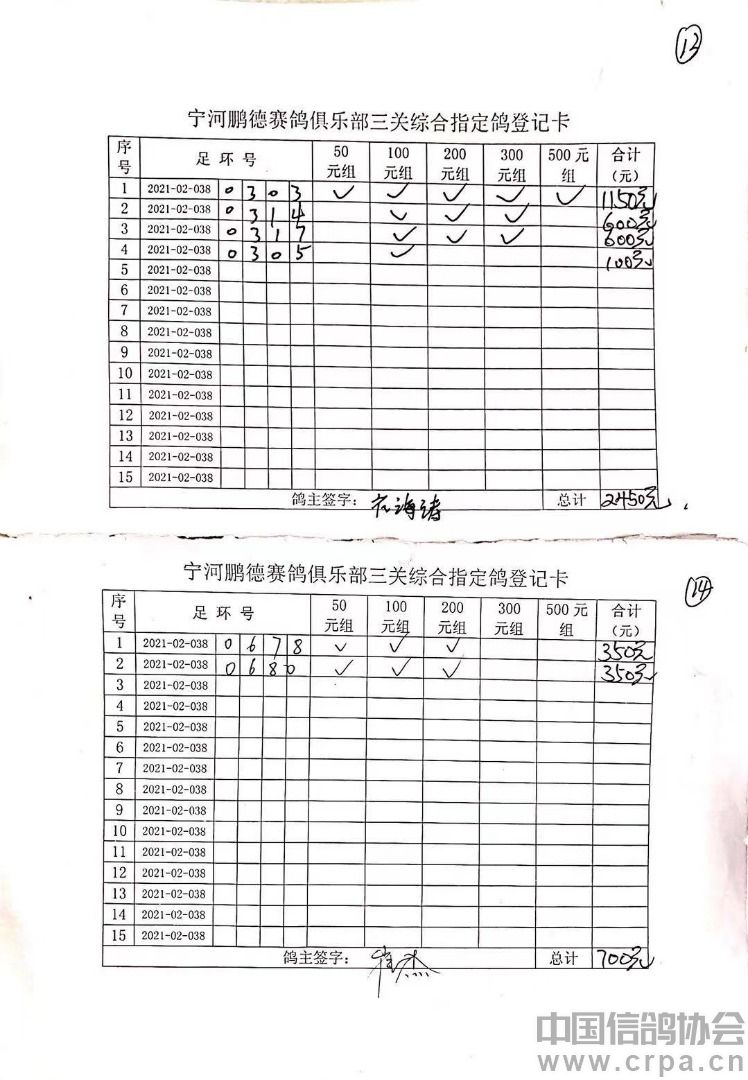 12
宁河鹏德赛鸽俱乐部三关综合指定鸽登记卡
序号 足环号 50元组 100元组 200元组 300元组 500元组 合计(元)
1 2021-02-038 0 3 0 3 ✓ ✓ ✓ ✓ ✓ 1150元
2 2021-02-038 0 3 1 4 ✓ ✓ ✓ 600元
3 2021-02-038 0 3 1 7 ✓ ✓ ✓ 600元
4 2021-02-038 0 3 0 5 ✓ 100元
5 2021-02-038
6 2021-02-038
7 2021-02-038
8 2021-02-038
9 2021-02-038
10 2021-02-038
11 2021-02-038
12 2021-02-038
13 2021-02-038
14 2021-02-038
15 2021-02-038
鸽主签字: 总计 2450元
14
宁河鹏德赛鸽俱乐部三关综合指定鸽登记卡
序号 足环号 50元组 100元组 200元组 300元组 500元组 合计(元)
1 2021-02-038 0 6 7 8 ✓ ✓ ✓ 350元
2 2021-02-038 0 6 8 0 ✓ ✓ ✓ 350元
3 2021-02-038
4 2021-02-038
5 2021-02-038
6 2021-02-038
7 2021-02-038
8 2021-02-038
9 2021-02-038
10 2021-02-038
11 2021-02-038
12 2021-02-038
13 2021-02-038
14 2021-02-038
15 2021-02-038
鸽主签字: 总计 700元
中国信鸽协会
www.crpa.cn